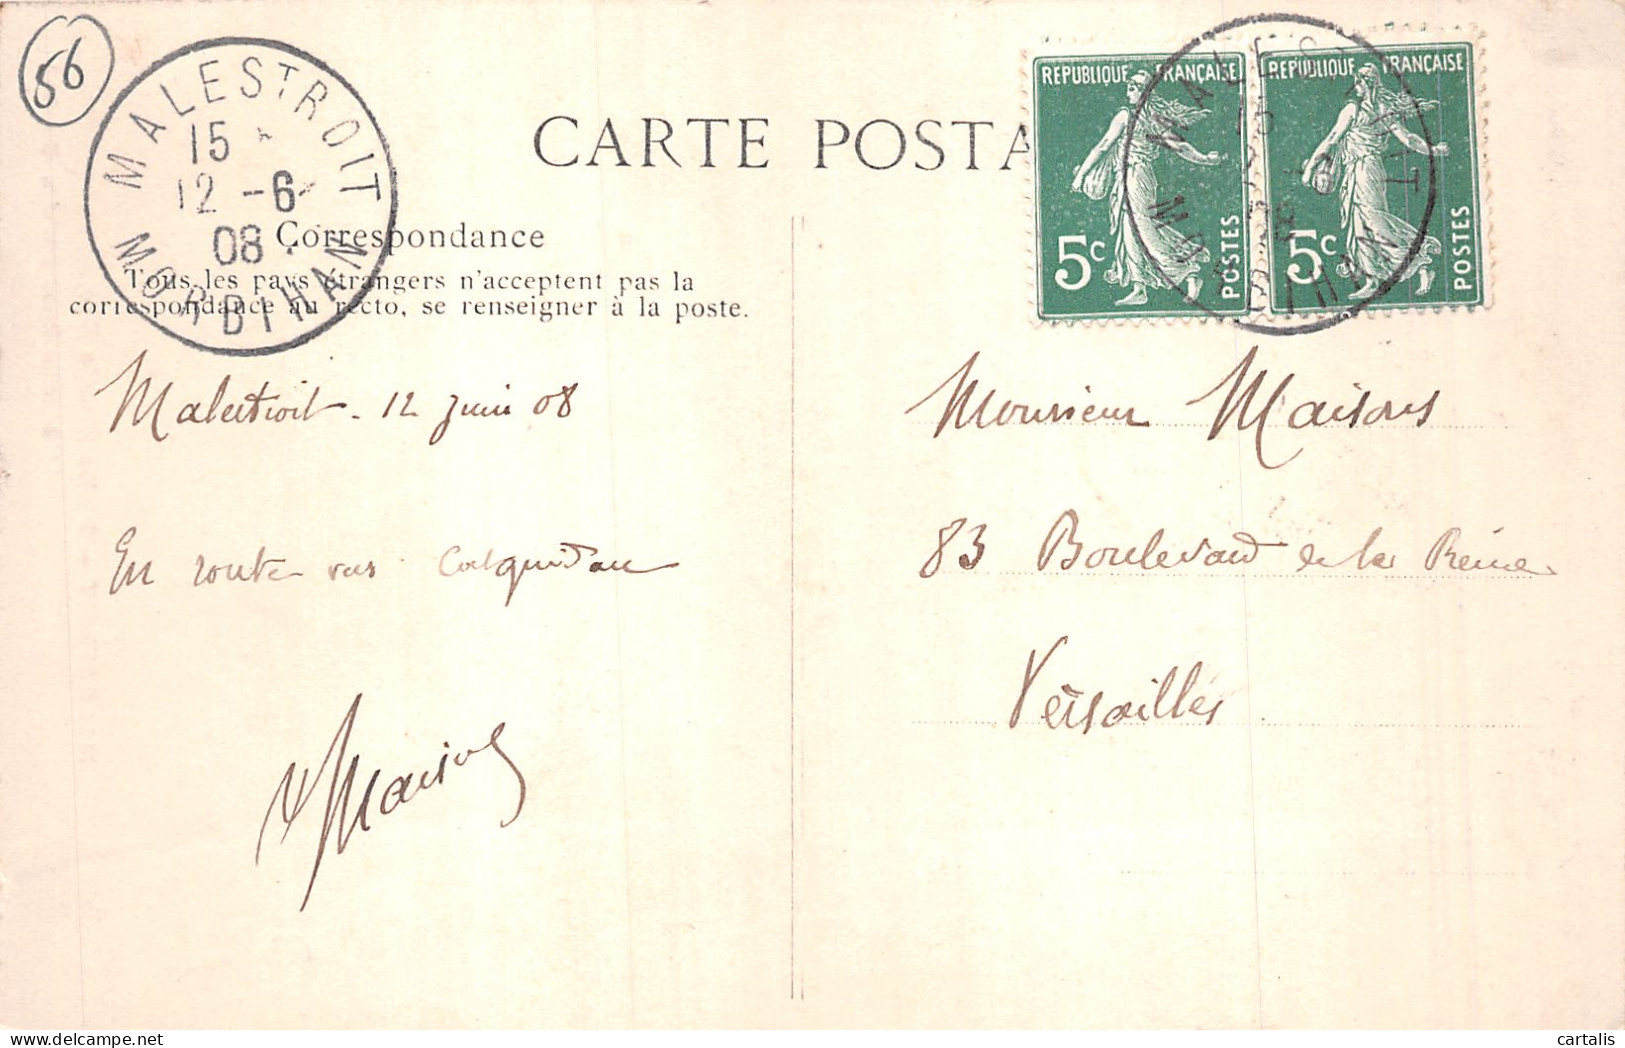 56
MALESTROIT
15 *
12 -6
08
MORBIHAN
CARTE POSTA
RÉPUBLIQUE FRANÇAISE
5c
POSTES
RÉPUBLIQUE FRANÇAISE
5c
POSTES
MALESTROIT
MORBIHAN
Correspondance
Tous les pays étrangers n'acceptent pas la
correspondance au recto, se renseigner à la poste.
Malestroit - 12 Juin 08
En route vers Coëtquidan
Maisons
Monsieur Maisons
83 Boulevard de la Reine
Versailles
cartalis